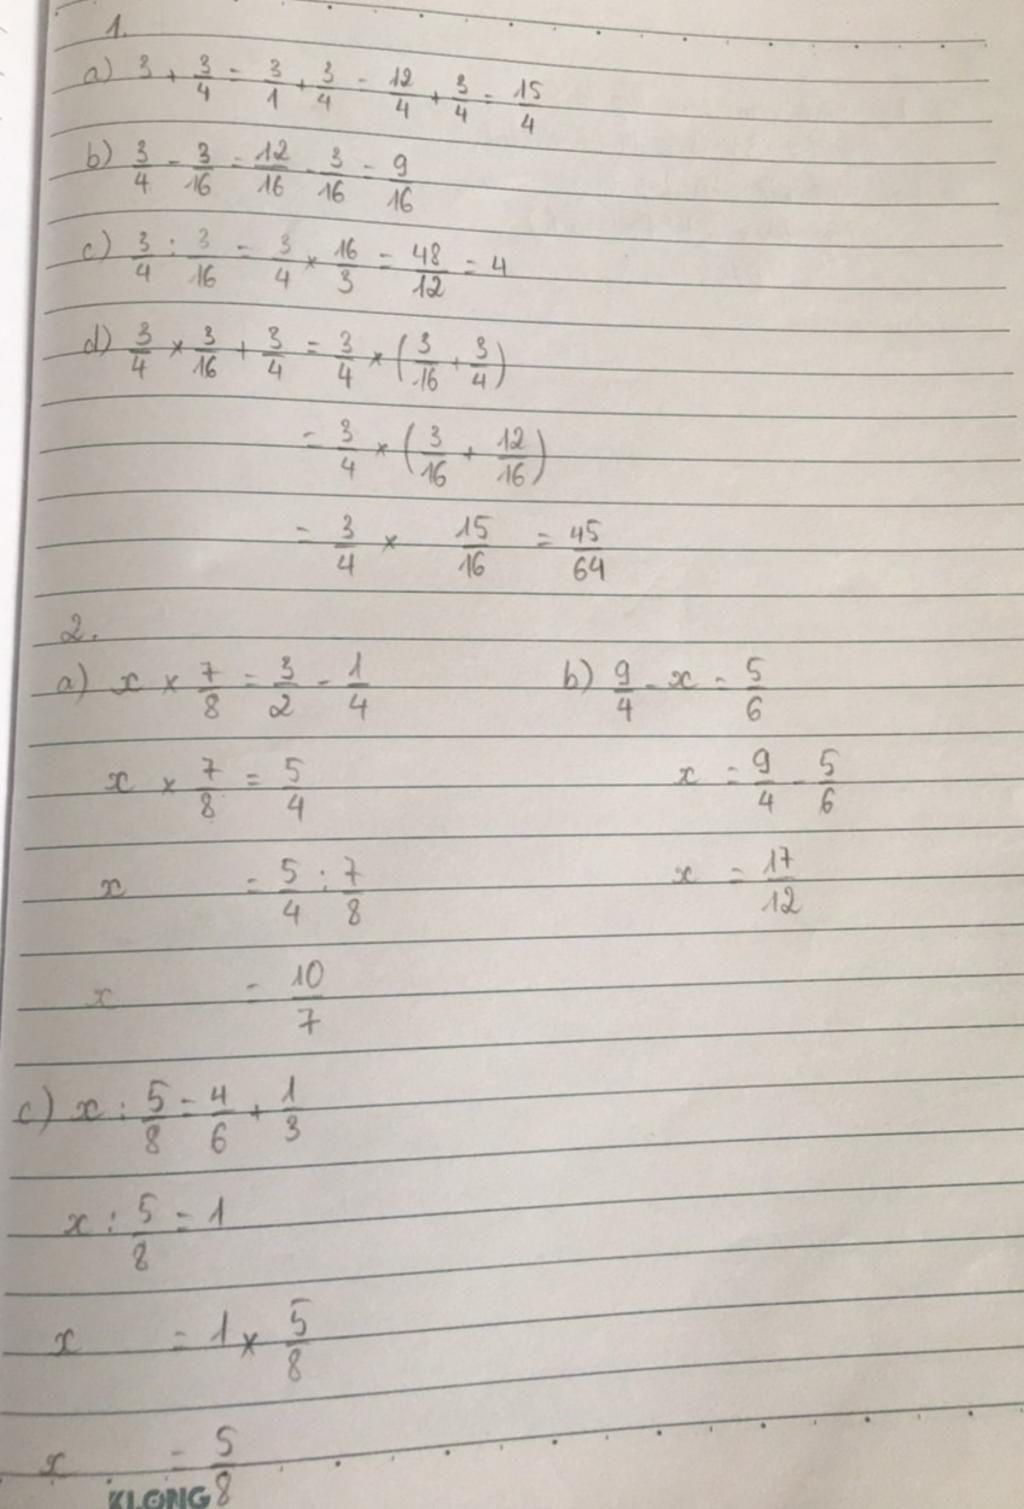 1.
a) 3 + 3/4 = 3/1 + 3/4 = 12/4 + 3/4 = 15/4
b) 3/4 - 3/16 = 12/16 - 3/16 = 9/16
c) 3/4 : 3/16 = 3/4 × 16/3 = 48/12 = 4
d) 3/4 × 3/16 + 3/4 = 3/4 × (3/16 + 3/4)
= 3/4 × (3/16 + 12/16)
= 3/4 × 15/16 = 45/64
2.
a) x × 7/8 = 3/2 - 1/4
x × 7/8 = 5/4
x = 5/4 : 7/8
x = 10/7
b) 9/4 - x = 5/6
x = 9/4 - 5/6
x = 17/12
c) x : 5/8 = 4/6 + 1/3
x : 5/8 = 1
x = 1 × 5/8
x = 5/8
KLONG